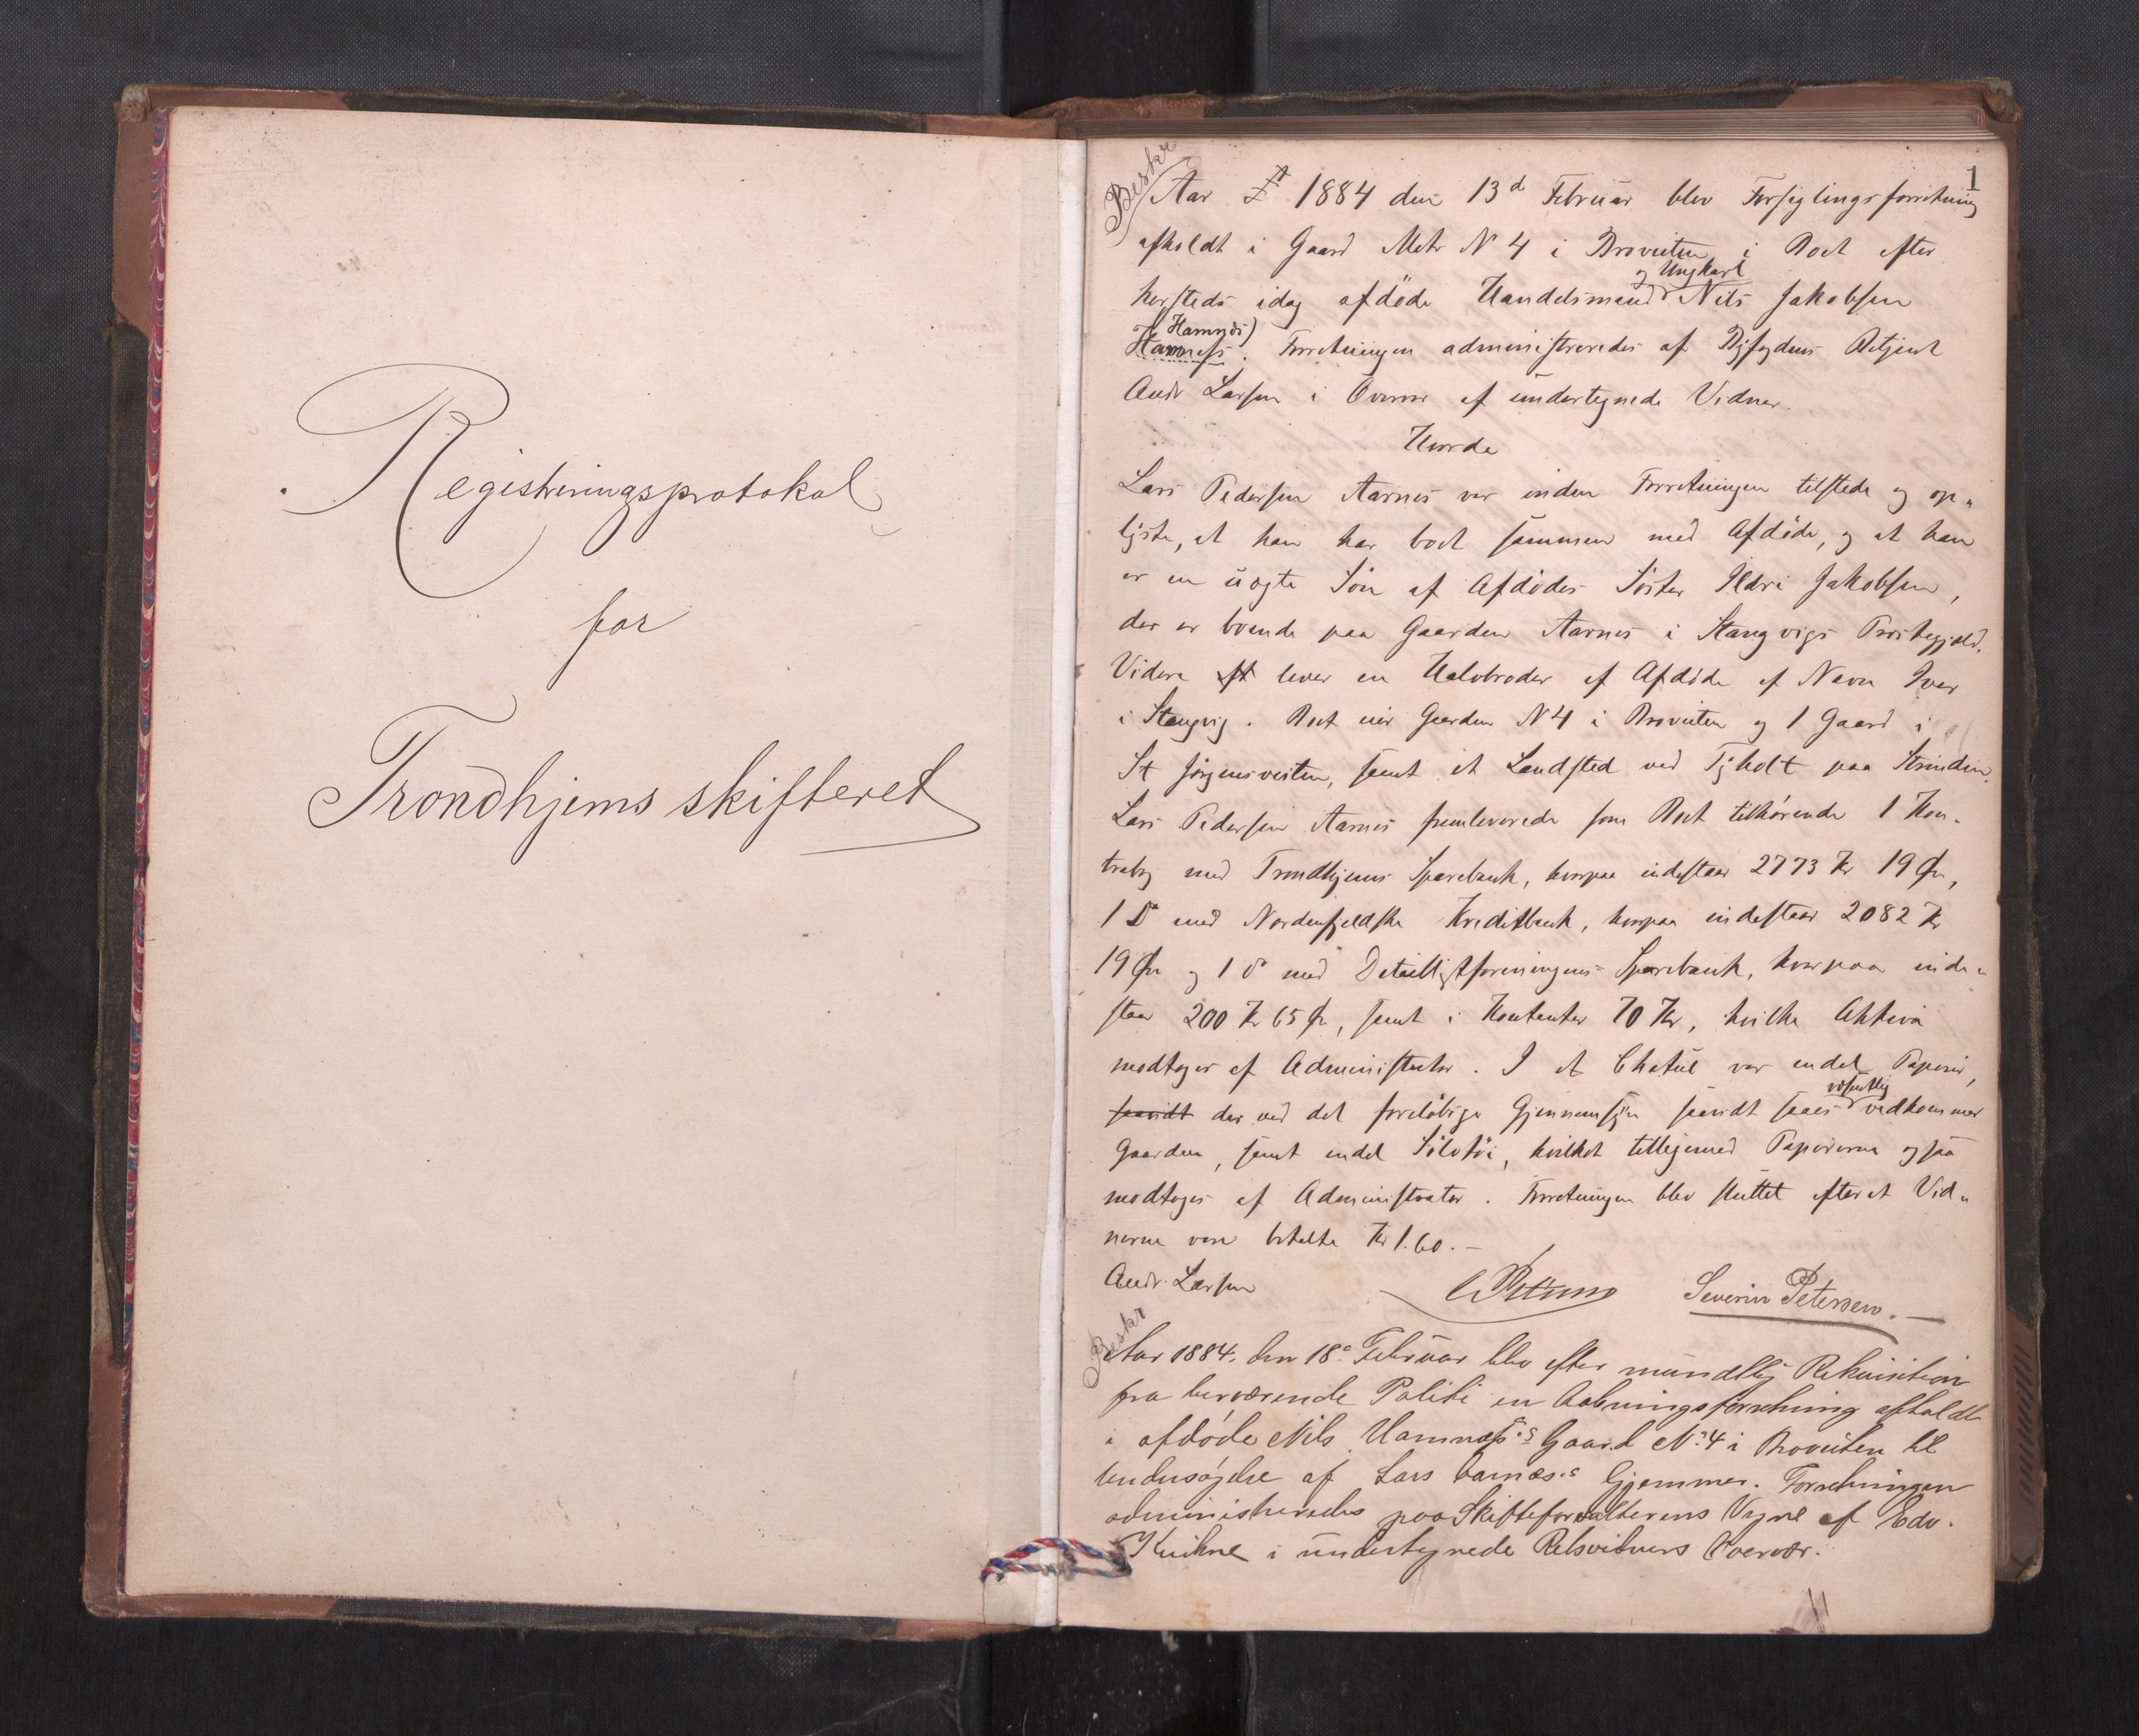 Registreringsprotokol
for
Trondhjems skifteret
1
Beskr
Aar 1884 den 13d Februar blev Forseglingsforretning
afholdt i Gaard Matr N 4 i Proveiten i Boet efter
og Ungkarl
hersteds idag afdøde Handelsmand Nils Jakobsen
Hamnes)
Hamnefs. Forretningen administreredes af Byfogdens Betjent
Andr Larsen i Overvær af undertegnede Vidner.
Hvorda
Lars Pedersen Aarnes var under Forretningen tilstede og op„
lyste, at han har boet sammen med Afdøde, og at han
er en uægte Søn af Afdødes Søster Ildri Jakobsen,
der er boende paa Gaarden Aarnes i Stangvigs Præstegjæld.
Videre lever en Halvbroder af Afdøde af Navn Iver
i Stangvig. Boet eier Gaarden N 4 i Proveiten og 1 Gaard i
St Jørgensveiten, samt et Landsted ved Tyholt paa Strinden.
Lars Pedersen Aarnes fremleverede som Boet tilhørende 1 Kon-
trabog med Trondhjems Sparebank, hvorpaa indestaar 2773 Kr 19 Øre,
1 Do med Nordenfjeldske Kreditbank, hvorpaa indestaar 2082 Kr
19 Øre og 1 do med Detaillistforeningens Sparebank, hvorpaa inde„
staar 200 Kr 65 Ør, samt i Kontanter 70 Kr, hvilke Aktiva
modtoges af Administrator. I et Chatul var endel Papirer,
væsentlig
saavidt der ved det foreløbige Gjennemsyn saavidt saaes vedkommer
Gaarden, samt endel Sølvtøi, hvilket tilligemed Papirerne ogsaa
modtoges af Administrator. Forretningen blev sluttet efterat Vid„
nerne vare betalte Kr 1.60.-
Andr. Larsen Severin Petersen.-
Beskr
Aar 1884, den 18de Februar blev efter mundtlig Rekvisition
fra herværende Politi en Aabningsforretning afholdt
i afdøde Nils Hamnæs's Gaard No 4 i Proveiten til
Undersøgelse af Lars Aarnæs's Gjemmer. Forretningen
administreredes paa Skifteforvalterens Vegne af Edv.
Kuhne i undertegnede Retsvidners Overvær.